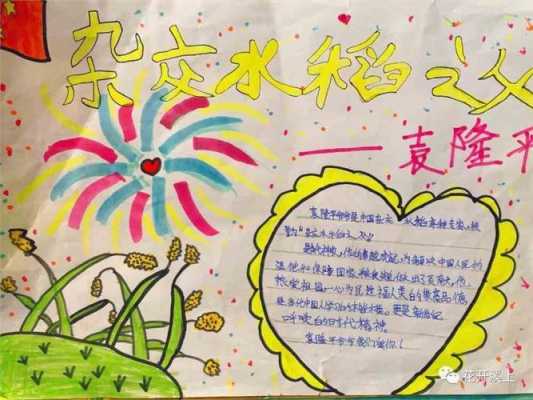 杂交水稻之父
——袁隆平
袁隆平爷爷是中国杂交水稻育种专家,被
誉为"杂交水稻之父"
为解决中国人民的
温饱和保障国家粮食安全做出了贡献,他
热爱祖国一心为民造福人类的崇高品德
是当代中国人学习的楷模。更是新世纪
呼唤的时代精神。
袁隆平爷爷我们爱你!
花开溪上